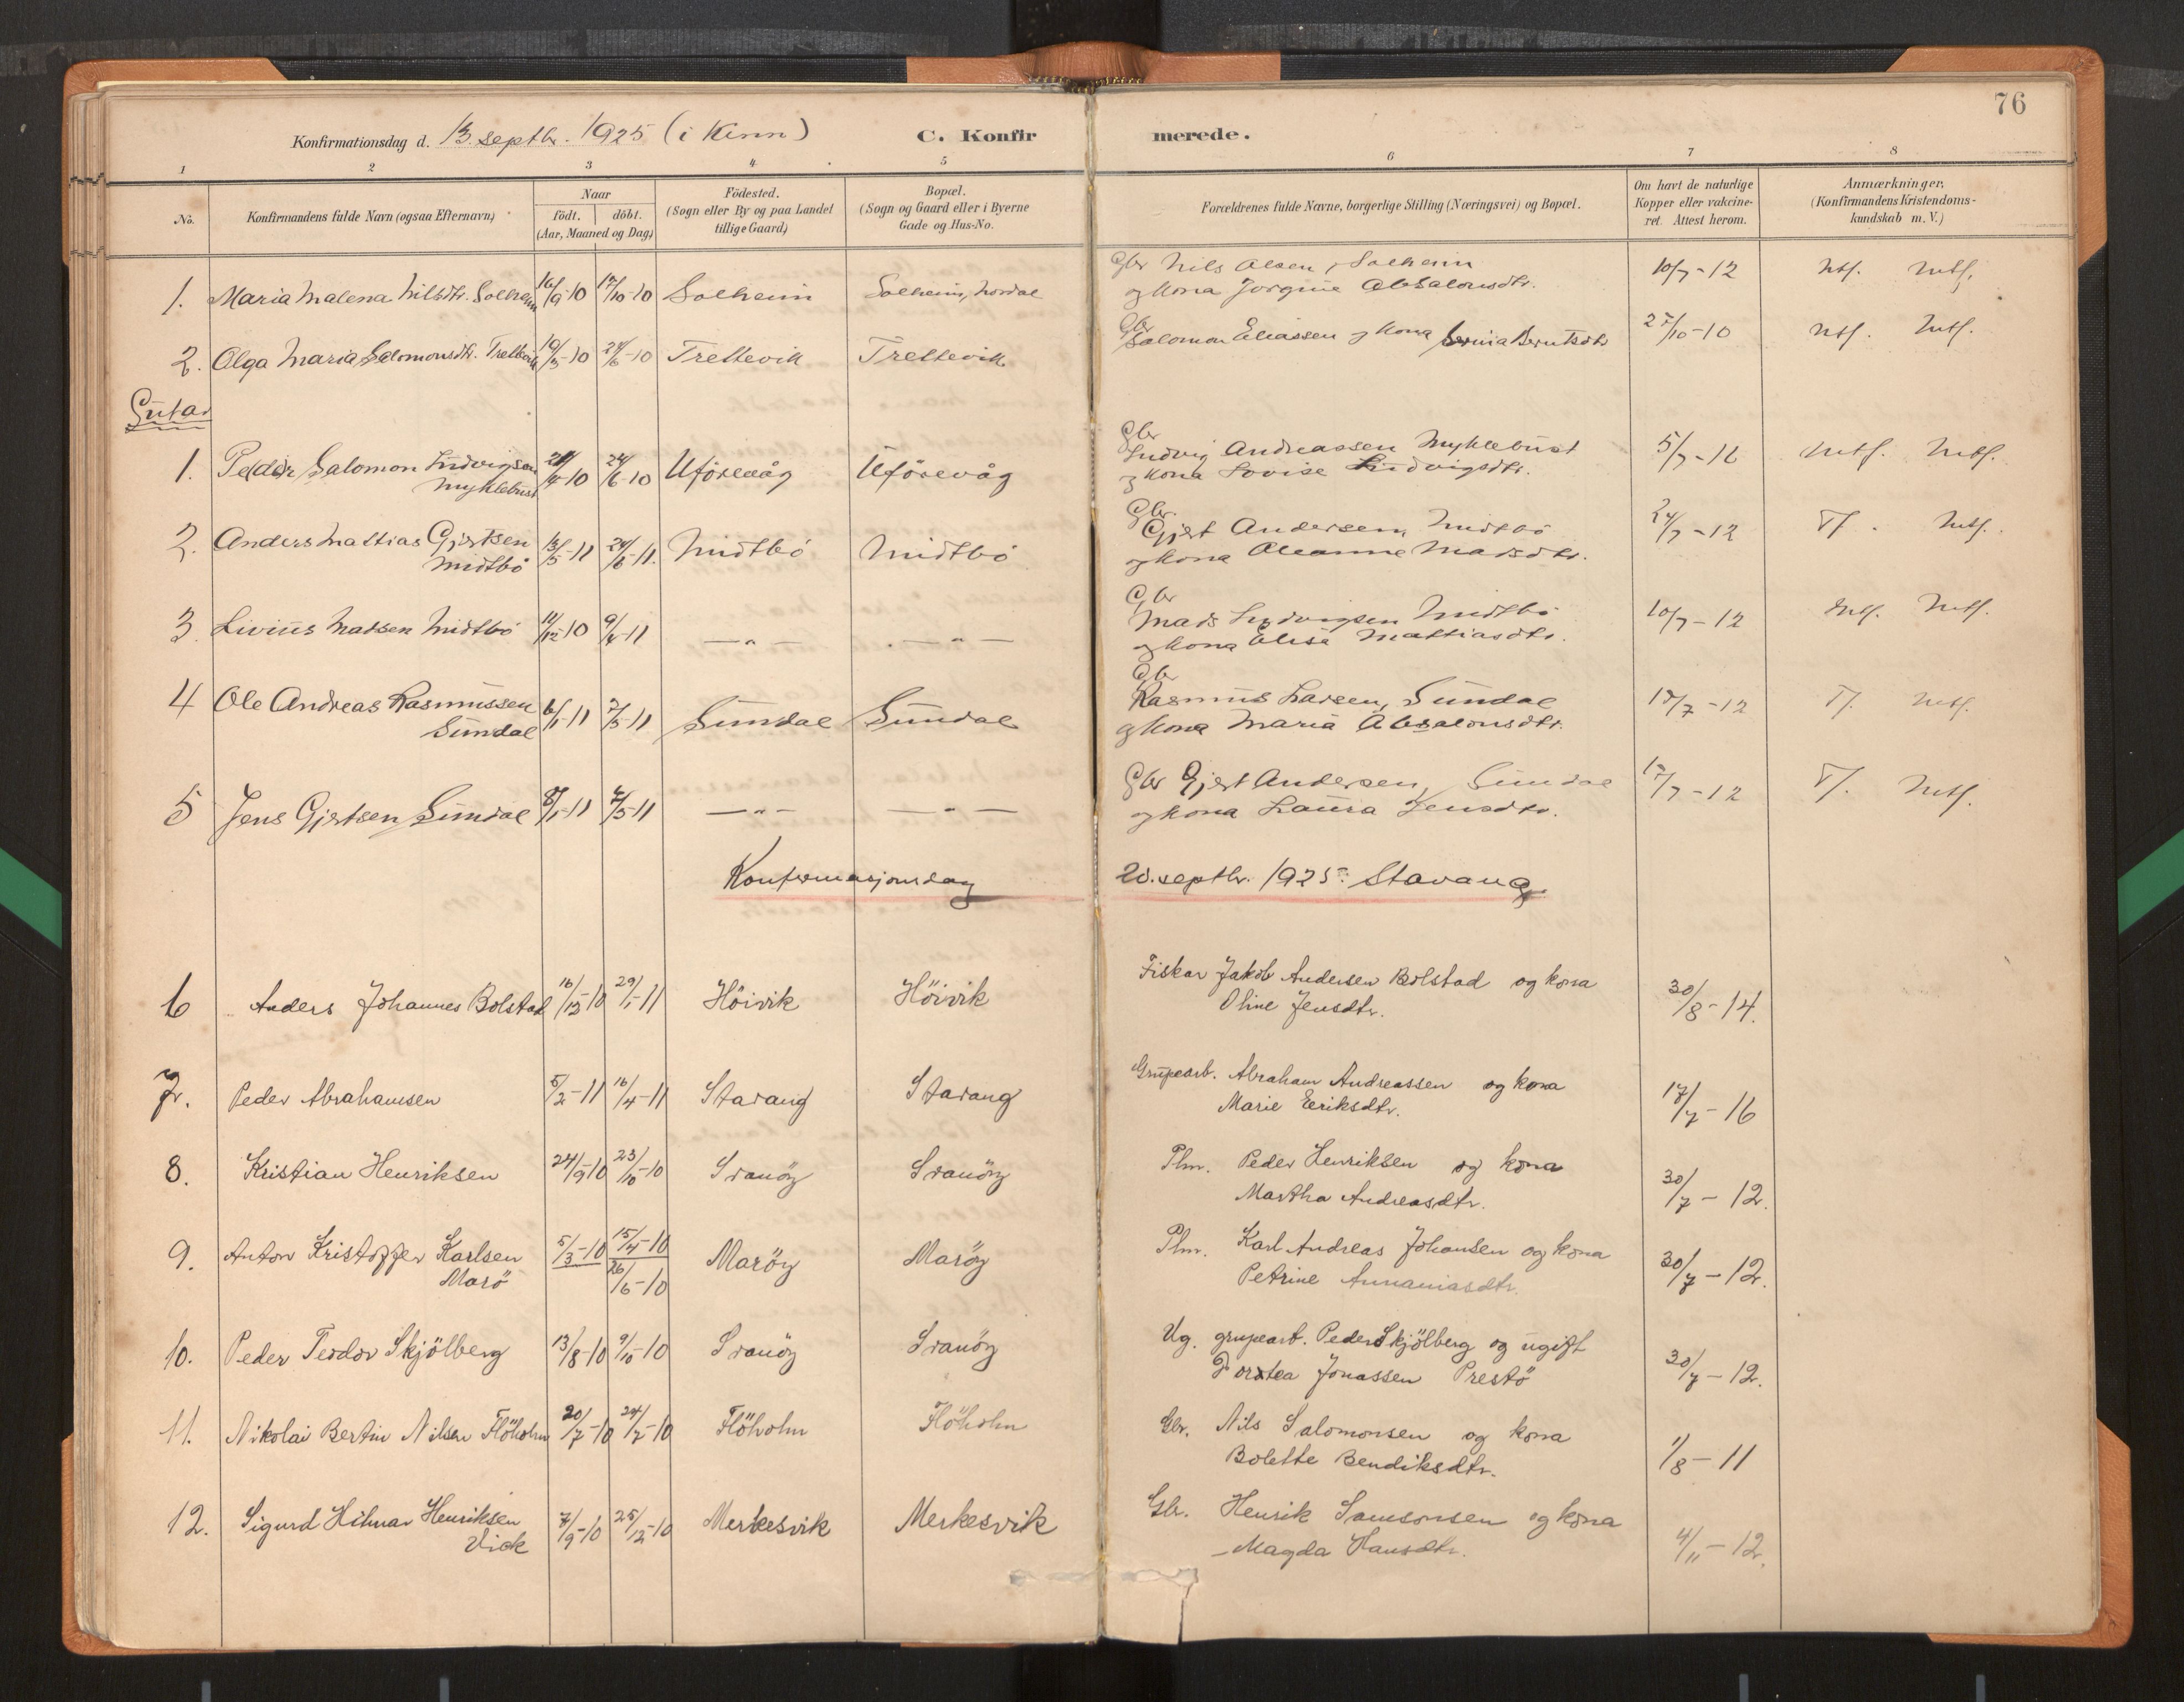 76
Konfirmationsdag d. 13. septbr. 1925 (i Kinn) C. Konfirmerede.
1 2 3 4 5 6 7 8
No. Konfirmandens fulde Navn (ogsaa Efternavn) Naar födt. döbt. (Aar, Maaned og Dag) Födested. (Sogn eller By og paa Landet tillige Gaard) Bopæl. (Sogn og Gaard eller i Byerne Gade og Hus-No. Forældrenes fulde Navne, borgerlige Stilling (Næringsvei) og Bopæl. Om havt de naturlige Kopper eller vakcineret. Attest herom. Anmærkninger. (Konfirmandens Kristendomskundskab m. V.)
1. Maria Malena Nilsdtr. Solheim 16/9-10 17/10-10 Solheim Solheim, Nordal Gbr Nils Olsen, Solheim
og kona Jorgine Absalonsdtr. 10/7-12 Mtf. Mtf.
2. Olga Maria Salomonsdtr. Trellevik 10/5-10 24/6-10 Trellevik Trellevik Gbr Salomon Eliassen og kona Berntsdtr 27/10-10 Mtf. Mtf.
Gutar
1. Peder Salomon Ludvigsen
Myklebust 24/6-10 Uförevåg Uförevåg Gbr
Ludvig Andreassen Myklebust
og kona Lovise Ludvigsdtr. 5/7-16 Mtf. Mtf.
2. Anders Mattias Gjertsen
Midtbö 13/5-11 24/6-11. Midtbö Midtbö Gbr.
Gjert Andersen, Midtbö
og kona Oleanne Madsdtr. 24/7-12 Tf. Mtf.
3. Livius Madsen Midtbö 11/12-10 9/4-11 —"— —"— Gbr
Mads Ludvigsen Midtbö
og kona Elisa Mattiasdtr. 10/7-12 Mtf. Mtf.
4 Ole Andreas Rasmussen
Sundal 6/1-11 7/5-11 Sundal Sundal Gbr
Rasmus Larsen, Sundal
og kona Maria Absalonsdtr. 17/7-12 Tf. Mtf.
5 Jens Gjertsen Sundal 8/1-11 7/5-11 —"— —"— Gbr Gjert Andersen, Sundal
og kona Laura Jensdtr. 17/7-12 Tf. Mtf.
Konfirmasjonsdag 20. septbr. 1925. Stavang.
6 Anders Johannes Bolstad 16/12-10 29/1-11 Höivik Höivik Fiskar Jakob Andersen Bolstad og kona
Oline Jensdtr. 30/8-14.
7. Peder Abrahamsen 5/2-11 16/4-11 Stavang Stavang Grupearb. Abraham Andreassen og kona
Marie Eeriksdtr. 17/7-16
8. Kristian Henriksen 24/9-10 23/10-10 Svanöy Svanöy Plm. Peder Henriksen og kona
Martha Andreasdtr. 30/7-12.
9. Anton Kristoffer Karlsen
Marö 5/3-10 15/4-10 26/6-10 Maröy Maröy Plm. Karl Andreas Johansen og kona
Petrine Annaniasdtr. 30/7-12.
10. Peder Teodor Skjölberg 13/8-10 9/10-10 Svanöy Svanöy Ug. grupearb. Peder Skjölberg og ugift
Dortea Jonassen Prestö 30/7-12.
11. Nikolai Bertin Nilsen Flöholm 20/7-10 24/7-10 Flöholm Flöholm Gbr. Nils Salomonsen og kona
Bolette Bendiksdtr. 1/8-11
12. Sigurd Hilmar Henriksen
Vick 7/9-10 25/12-10 Merkesvik Merkesvik Gbr. Henrik Samsonsen og kona
Magda Hansdtr. 4/11-12.